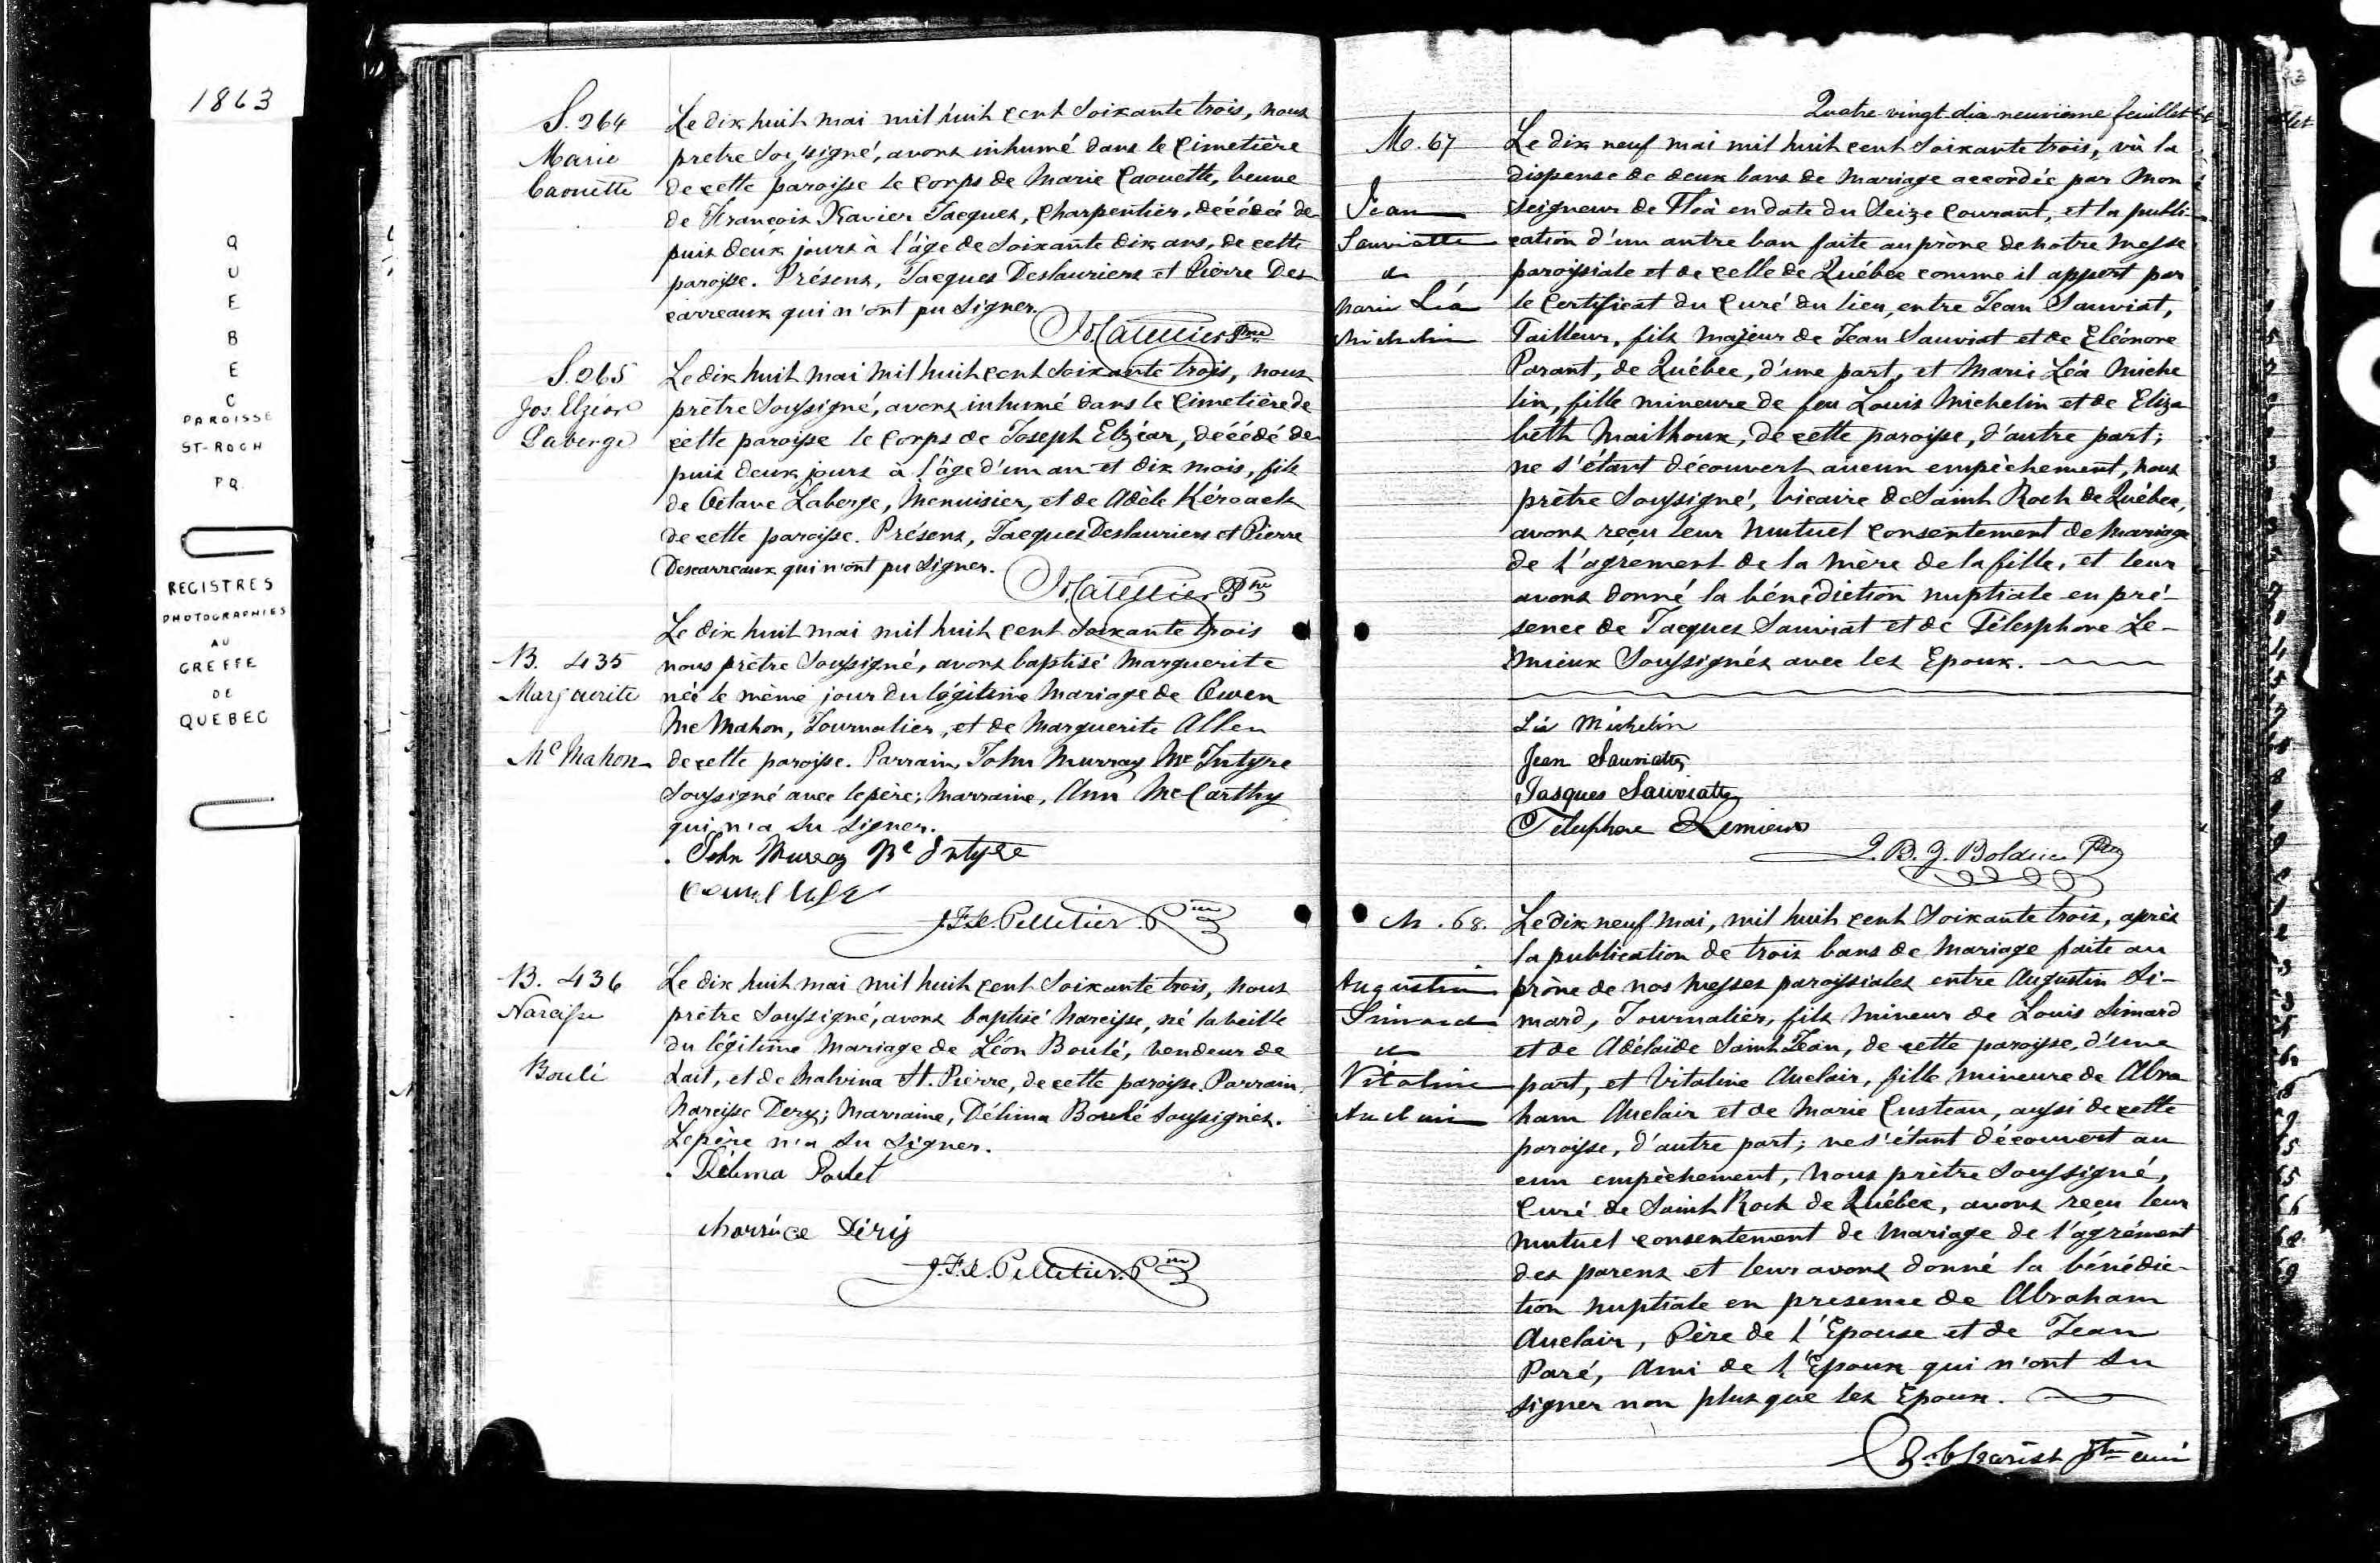 1863
QUEBEC
PAROISSE
ST-ROCH
PQ.
REGISTRES
PHOTOGRAPHIES
AU
GREFFE
DE
QUEBEC
S. 264
Marie
Caouette
Le dix huit mai mil huit cent soixante trois, nous
prêtre soussigné, avons inhumé dans le cimetière
de cette paroisse le corps de Marie Caouette, veuve
de François Xavier Jacques, Charpentier, décédée de
puis deux jours à l'âge de soixante dix ans, de cette
paroisse. Présens, Jacques Deslauriers et Pierre Des
carreaux qui n'ont pu signer.
S. 265
Jos. Elzéar
Laberge
Le dix huit mai mil huit cent soixante trois, nous
prêtre soussigné, avons inhumé dans le cimetière de
cette paroisse le corps de Joseph Elzéar, décédé de
puis deux jours à l'âge d'un an et dix mois, fils
de Octave Laberge, Menuisier, et de Adèle Kéroack
de cette paroisse. Présens, Jacques Deslauriers et Pierre
Descarreaux qui n'ont pu signer.
B. 435
Marguerite
McMahon
Le dix huit mai mil huit cent soixante trois
nous prêtre soussigné, avons baptisé Marguerite
née le même jour du légitime mariage de Owen
McMahon, Journalier, et de Marguerite Allen
de cette paroisse. Parrain, John Murray McIntyre
soussigné avec le père; Marraine, Ann McCarthy
qui n'a su signer.
John Murray Mc Intyre
J.F.X. Pelletier Ptre
B. 436
Narcisse
Boulé
Le dix huit mai mil huit cent soixante trois, nous
prêtre soussigné, avons baptisé Narcisse, né la veille
du légitime mariage de Léon Boulé, vendeur de
Lait, et de Malvina St. Pierre, de cette paroisse. Parrain,
Narcisse Dery; Marraine, Délima Boulé soussignés.
Le père n'a su signer.
Délima Poulet
Narsice Déry
J.F.X. Pelletier Ptre
Quatre vingt dix neuvième feuillet
M. 67
Jean
Sauviatte
&
Marie Léa
Michelin
Le dix neuf mai mil huit cent soixante trois, vû la
dispense de deux bans de mariage accordée par Mon
seigneur de Tloà en date du seize courant, et la publi-
cation d'un autre ban faite au prône de notre messe
paroissiale et de celle de Québec comme il appert par
le certificat du Curé du lieu, entre Jean Sauviat,
Tailleur, fils majeur de Jean Sauviat et de Eléonore
Parant, de Québec, d'une part, et Marie Léa Miche
lin, fille mineure de feu Louis Michelin et de Eliza
beth Mailhoux, de cette paroisse, d'autre part;
ne s'étant découvert aucun empêchement, nous
prêtre soussigné, vicaire de Saint Roch de Québec,
avons reçu leur mutuel consentement de mariage
de l'agrement de la mère de la fille, et leur
avons donné la bénédiction nuptiale en pré-
sence de Jacques Sauviat et de Télesphore Le-
mieux soussignés avec les Epoux.
Léa Michelin
Jean Sauviatte
Jasques Sauviatte
Télesphore Lemieux
J.B.Z. Bolduc Ptre
M. 68.
Augustin
Simard
&
Vitaline
Auclair
Le dix neuf mai, mil huit cent soixante trois, après
la publication de trois bans de mariage faite au
prône de nos messes paroissiales entre Augustin Si-
mard, Journalier, fils mineur de Louis Simard
et de Adélaïde Saint Jean, de cette paroisse, d'une
part, et Vitaline Auclair, fille mineure de Abra
ham Auclair et de Marie Custeau, aussi de cette
paroisse, d'autre part; ne s'étant découvert au
cun empêchement, Nous prêtre soussigné,
Curé de Saint Roch de Québec, avons reçu leur
mutuel consentement de mariage de l'agrément
des parens et leur avons donné la bénédic-
tion nuptiale en presence de Abraham
Auclair, Père de l'Epouse et de Jean
Paré, Ami de l'Epoux qui n'ont su
signer non plus que les Epoux.
Z. Charest Ptre curé